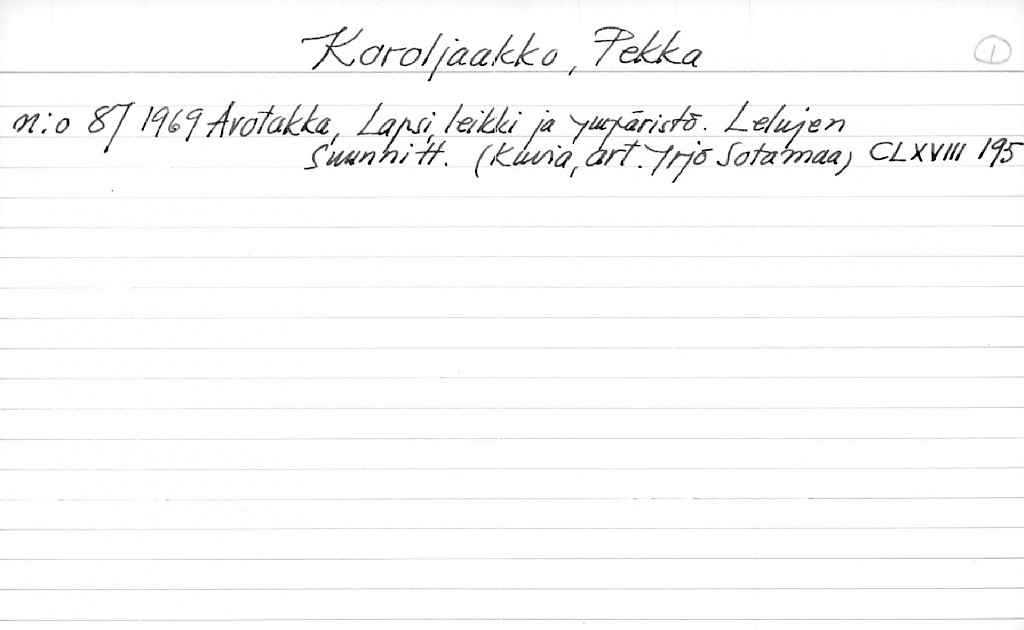 Koroljaakko, Pekka 1
n:o 8/1969 Avotakka, Lapsi, leikki ja ympäristö. Lelujen
suunnitt. (Kuvia, art. Yrjö Sotamaa) CLXVIII 195